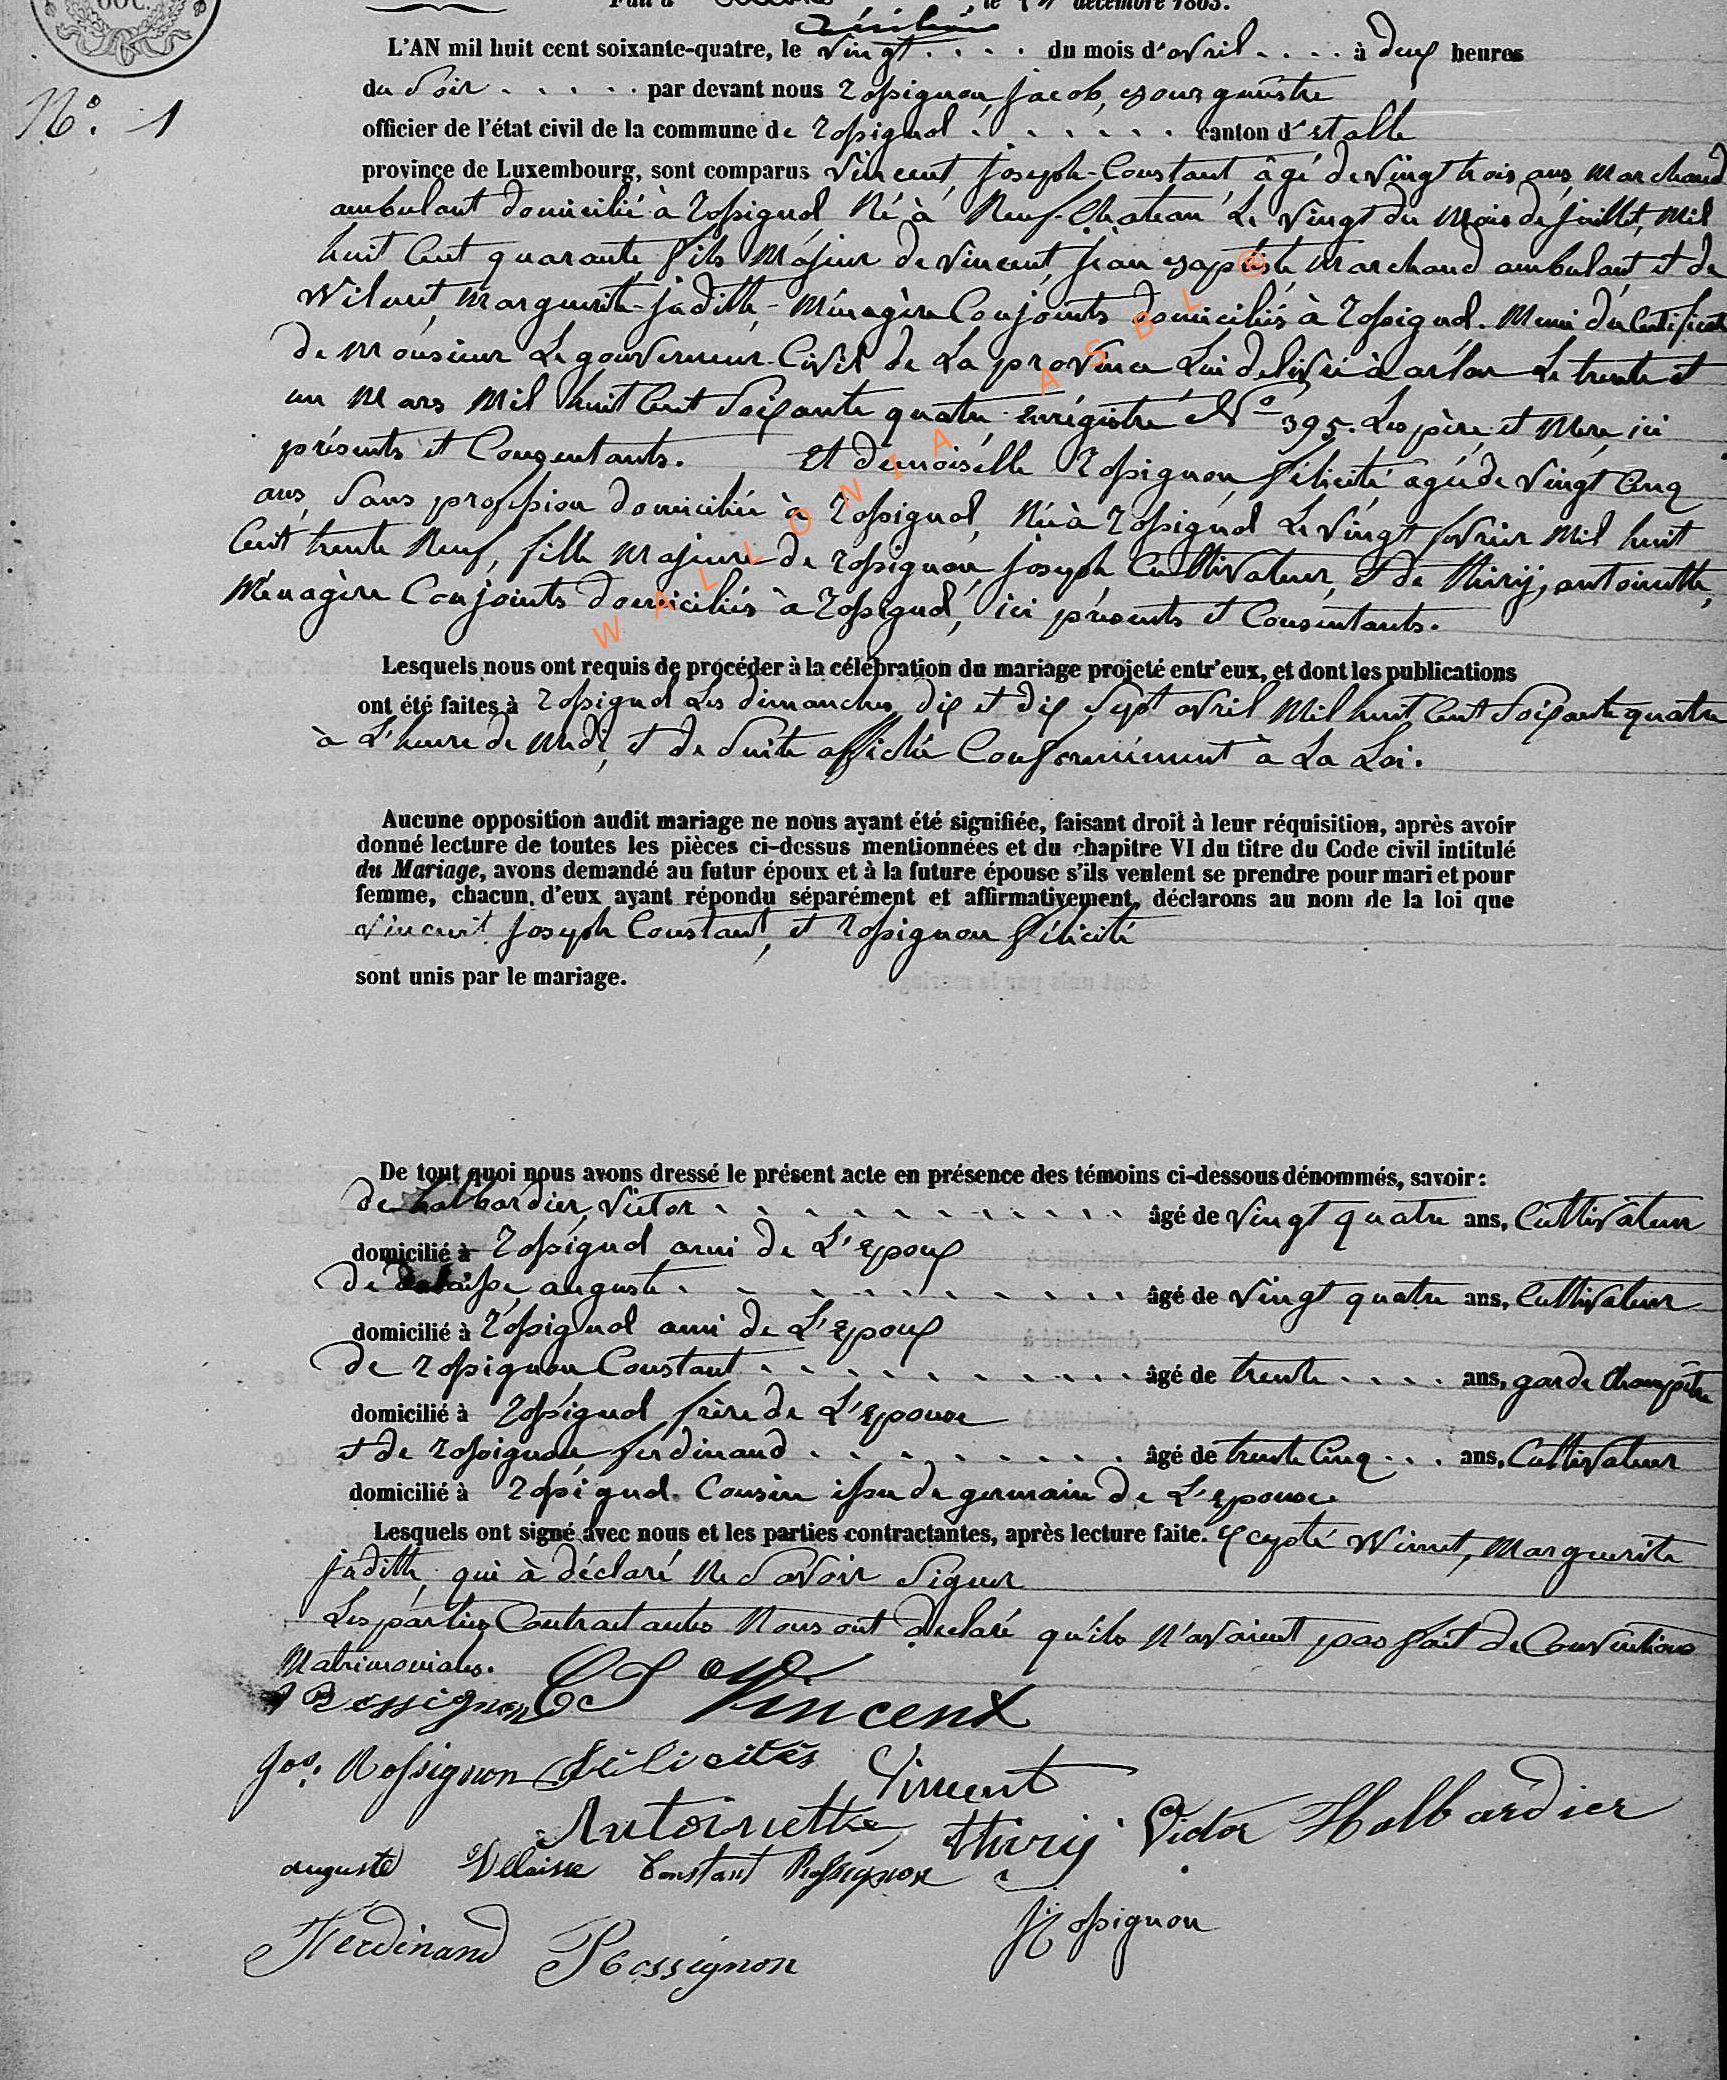 60 C.
Fait à le 31 décembre 1863.
N.º 1
L'AN mil huit cent soixante-quatre, le vingt . . . . du mois d'avril . . . . à deux heures
du Soir . . . . . . par devant nous Rossignon, Jacob, Bourgmestre
officier de l'état civil de la commune de Rossignol . . . . . . . canton d'Etalle
province de Luxembourg, sont comparus Vincent, Joseph-Constant âgé de vingt trois ans, Marchand
ambulant domicilié à Rossignol, Né à Neuf-Chateau Le vingt du Mois de Juillet, Mil
huit Cent quarante fils Majeur de Vincent, Jean Baptiste Marchand ambulant, et de
Wilmet, Marguerite-Judith, - Ménagère Conjoints domiciliés à Rossignol. Muni du Certificat
de Monsieur Le gouverneur Civil de La province Lui delivré à arlon Le trente et
un Mars Mil huit Cent Soixante quatre enrégistré Nº 395. Les père et Mere ici
présents et Consentants. Et demoiselle Rossignon, félicité agée de vingt Cinq
ans, Sans profession domiciliée à Rossignol, Née à Rossignol Le vingt fevrier Mil huit
Cent trente Neuf, fille Majeure de Rossignon, Joseph Cultivateur, et de Thiry, antoinette,
Ménagère Conjoints domiciliés à Rossignol, ici présents et Consentants.
WALLONIA ASBL ©
Lesquels nous ont requis de procéder à la célébration du mariage projeté entr'eux, et dont les publications
ont été faites à Rossignol Les dimanches dix et dix Sept avril Mil huit Cent Soixante quatre
à L'heure de Midi, et de Suite affichée Conformément à La Loi.
Aucune opposition audit mariage ne nous ayant été signifiée, faisant droit à leur réquisition, après avoir
donné lecture de toutes les pièces ci-dessus mentionnées et du chapitre VI du titre du Code civil intitulé
du Mariage, avons demandé au futur époux et à la future épouse s'ils veulent se prendre pour mari et pour
femme, chacun d'eux ayant répondu séparément et affirmativement, déclarons au nom de la loi que
Vincent Joseph Constant, et Rossignon félicité
sont unis par le mariage.
De tout quoi nous avons dressé le présent acte en présence des témoins ci-dessous dénommés, savoir :
de halbardier, Victor . . . . . . . . . . . âgé de vingt quatre ans, Cultivateur
domicilié à Rossignol ami de L'Epoux
de delaisse, auguste . . . . . . . . . . . âgé de vingt quatre ans, Cultivateur
domicilié à Rossignol ami de L'Epoux
de Rossignon Constant . . . . . . . . . . âgé de trente . . . . ans, garde Champêtre
domicilié à Rossignol, frère de L'Epouse
et de Rossignon, ferdinand . . . . . . . . âgé de trente Cinq . . . ans, Cultivateur
domicilié à Rossignol. Cousin issu de germain de L'Epouse
Lesquels ont signé avec nous et les parties contractantes, après lecture faite. Excepté Wilmet, Marguerite
Judith, qui à déclaré Ne Savoir Signer
Les parties Contractantes Nous ont declaré qu'ils N'avaient pas fait de Conventions
Matrimoniales.
Rossignon Vincent
Jos. Rossignon félicités Vincent
Antoinette Thiry Victor Halbardier
auguste Delaisse Constant Rossignon
J Rossignon
Ferdinand Rossignon